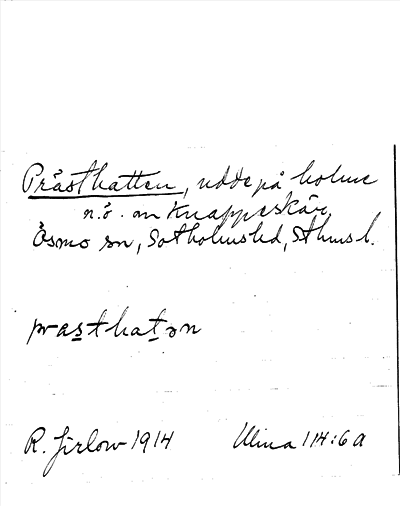 Pråsthatten, udde på holme
n.ö. om Knappeskär,
Ösmo sn, Sotholmshd, Sthmsl.
prasthatən
R. Jirlow 1914 Ulma 114:6a